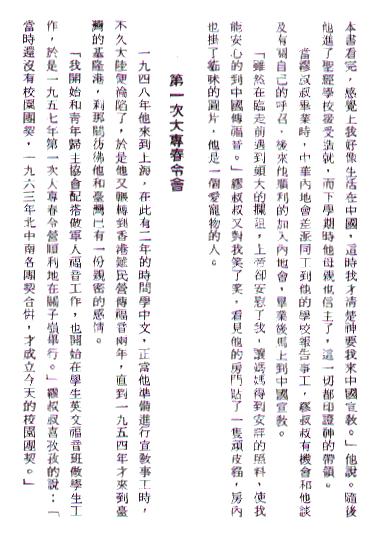 本書看完，感覺上我好像生活在中國，這時我才清楚神要我來中國宣教。」他說。隨後
他進了聖經學校接受造就，而下學期時他母親也信主了，這一切都印證神的帶領。
當繆叔叔畢業時，中華內地會差派同工到他的學校報告事工，繆叔叔有機會和他談
及有關自己的呼召，後來他順利的加入內地會，畢業後馬上到中國宣教。
「雖然在臨走前遇到頗大的攔阻，上帝卻安慰了我，讓媽媽得到妥詳的照料，使我
能安心的到中國傳福音。」繆叔叔又對我笑了笑，看見他的房門貼了一隻頑皮貓，房內
也掛了貓咪的圖片，他是一個愛寵物的人。
第一次大專春令會
一九四八年他來到上海，在此有二年的時間學中文，正當他準備進行宣教事工時，
不久大陸便淪陷了，於是他又輾轉到香港難民營傳福音兩年，直到一九五四年才來到臺
灣的基隆港，剎那間彷彿他和臺灣已有一份親密的感情。
「我開始和青年歸主協會配搭做軍人福音工作，也開始在學生英文福音班做學生工
作，於是一九五七年第一次大專春令營順利地在關子嶺舉行。」繆叔叔喜孜孜的說：「
當時還沒有校園團契，一九六三年北中南各團契合併，才成立今天的校園團契。」